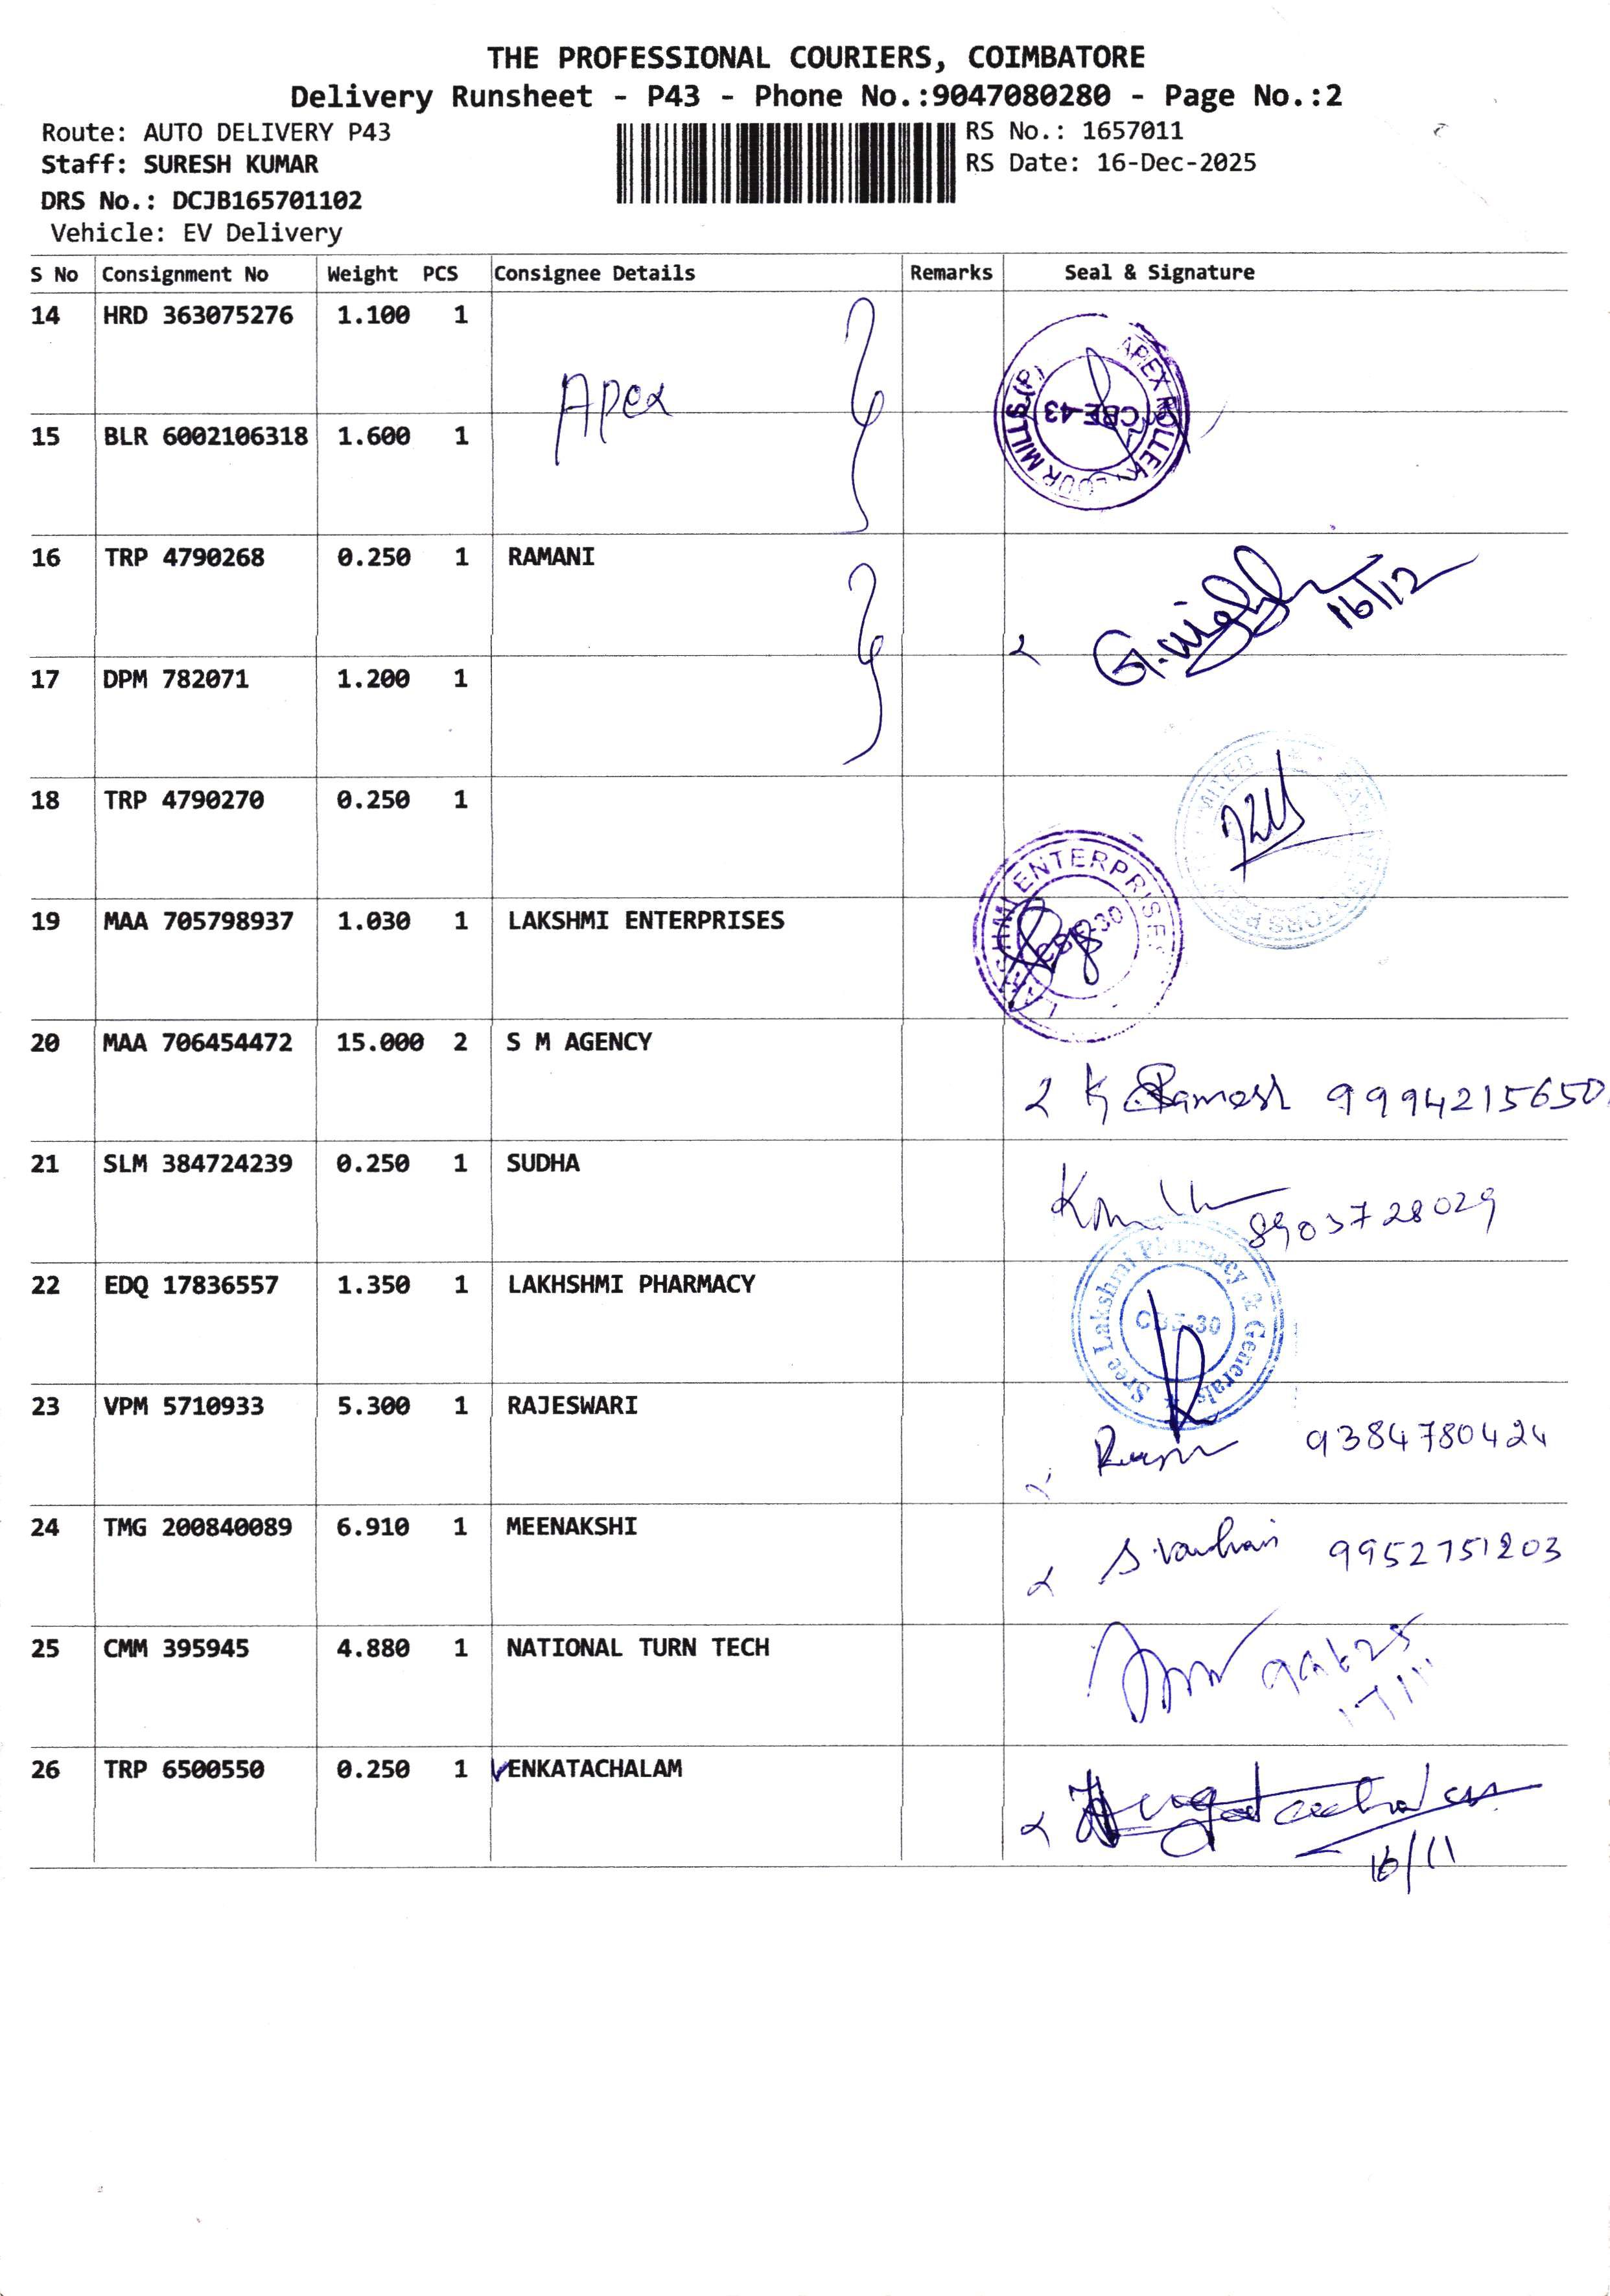 THE PROFESSIONAL COURIERS, COIMBATORE
Delivery Runsheet - P43 - Phone No.:9047080280 - Page No.:2
Route: AUTO DELIVERY P43
RS No.: 1657011
Staff: SURESH KUMAR
RS Date: 16-Dec-2025
DRS No.: DCJB165701102
Vehicle: EV Delivery
S No Consignment No Weight PCS Consignee Details Remarks Seal & Signature
14 HRD 363075276 1.100 1
Apex
APEX ROLLER FLOUR MILLS (P)
CBE-43
15 BLR 6002106318 1.600 1
16 TRP 4790268 0.250 1 RAMANI
16/12
17 DPM 782071 1.200 1
18 TRP 4790270 0.250 1
19 MAA 705798937 1.030 1 LAKSHMI ENTERPRISES
LAKSHMI ENTERPRISES
CBE-30
20 MAA 706454472 15.000 2 S M AGENCY
K Ramesh 9994215650
21 SLM 384724239 0.250 1 SUDHA
8903728029
22 EDQ 17836557 1.350 1 LAKHSHMI PHARMACY
Sree Lakshmi Pharmacy & Generals
CBE-30
23 VPM 5710933 5.300 1 RAJESWARI
9384780424
24 TMG 200840089 6.910 1 MEENAKSHI
9952751203
25 CMM 395945 4.880 1 NATIONAL TURN TECH
26 TRP 6500550 0.250 1 VENKATACHALAM
16/11